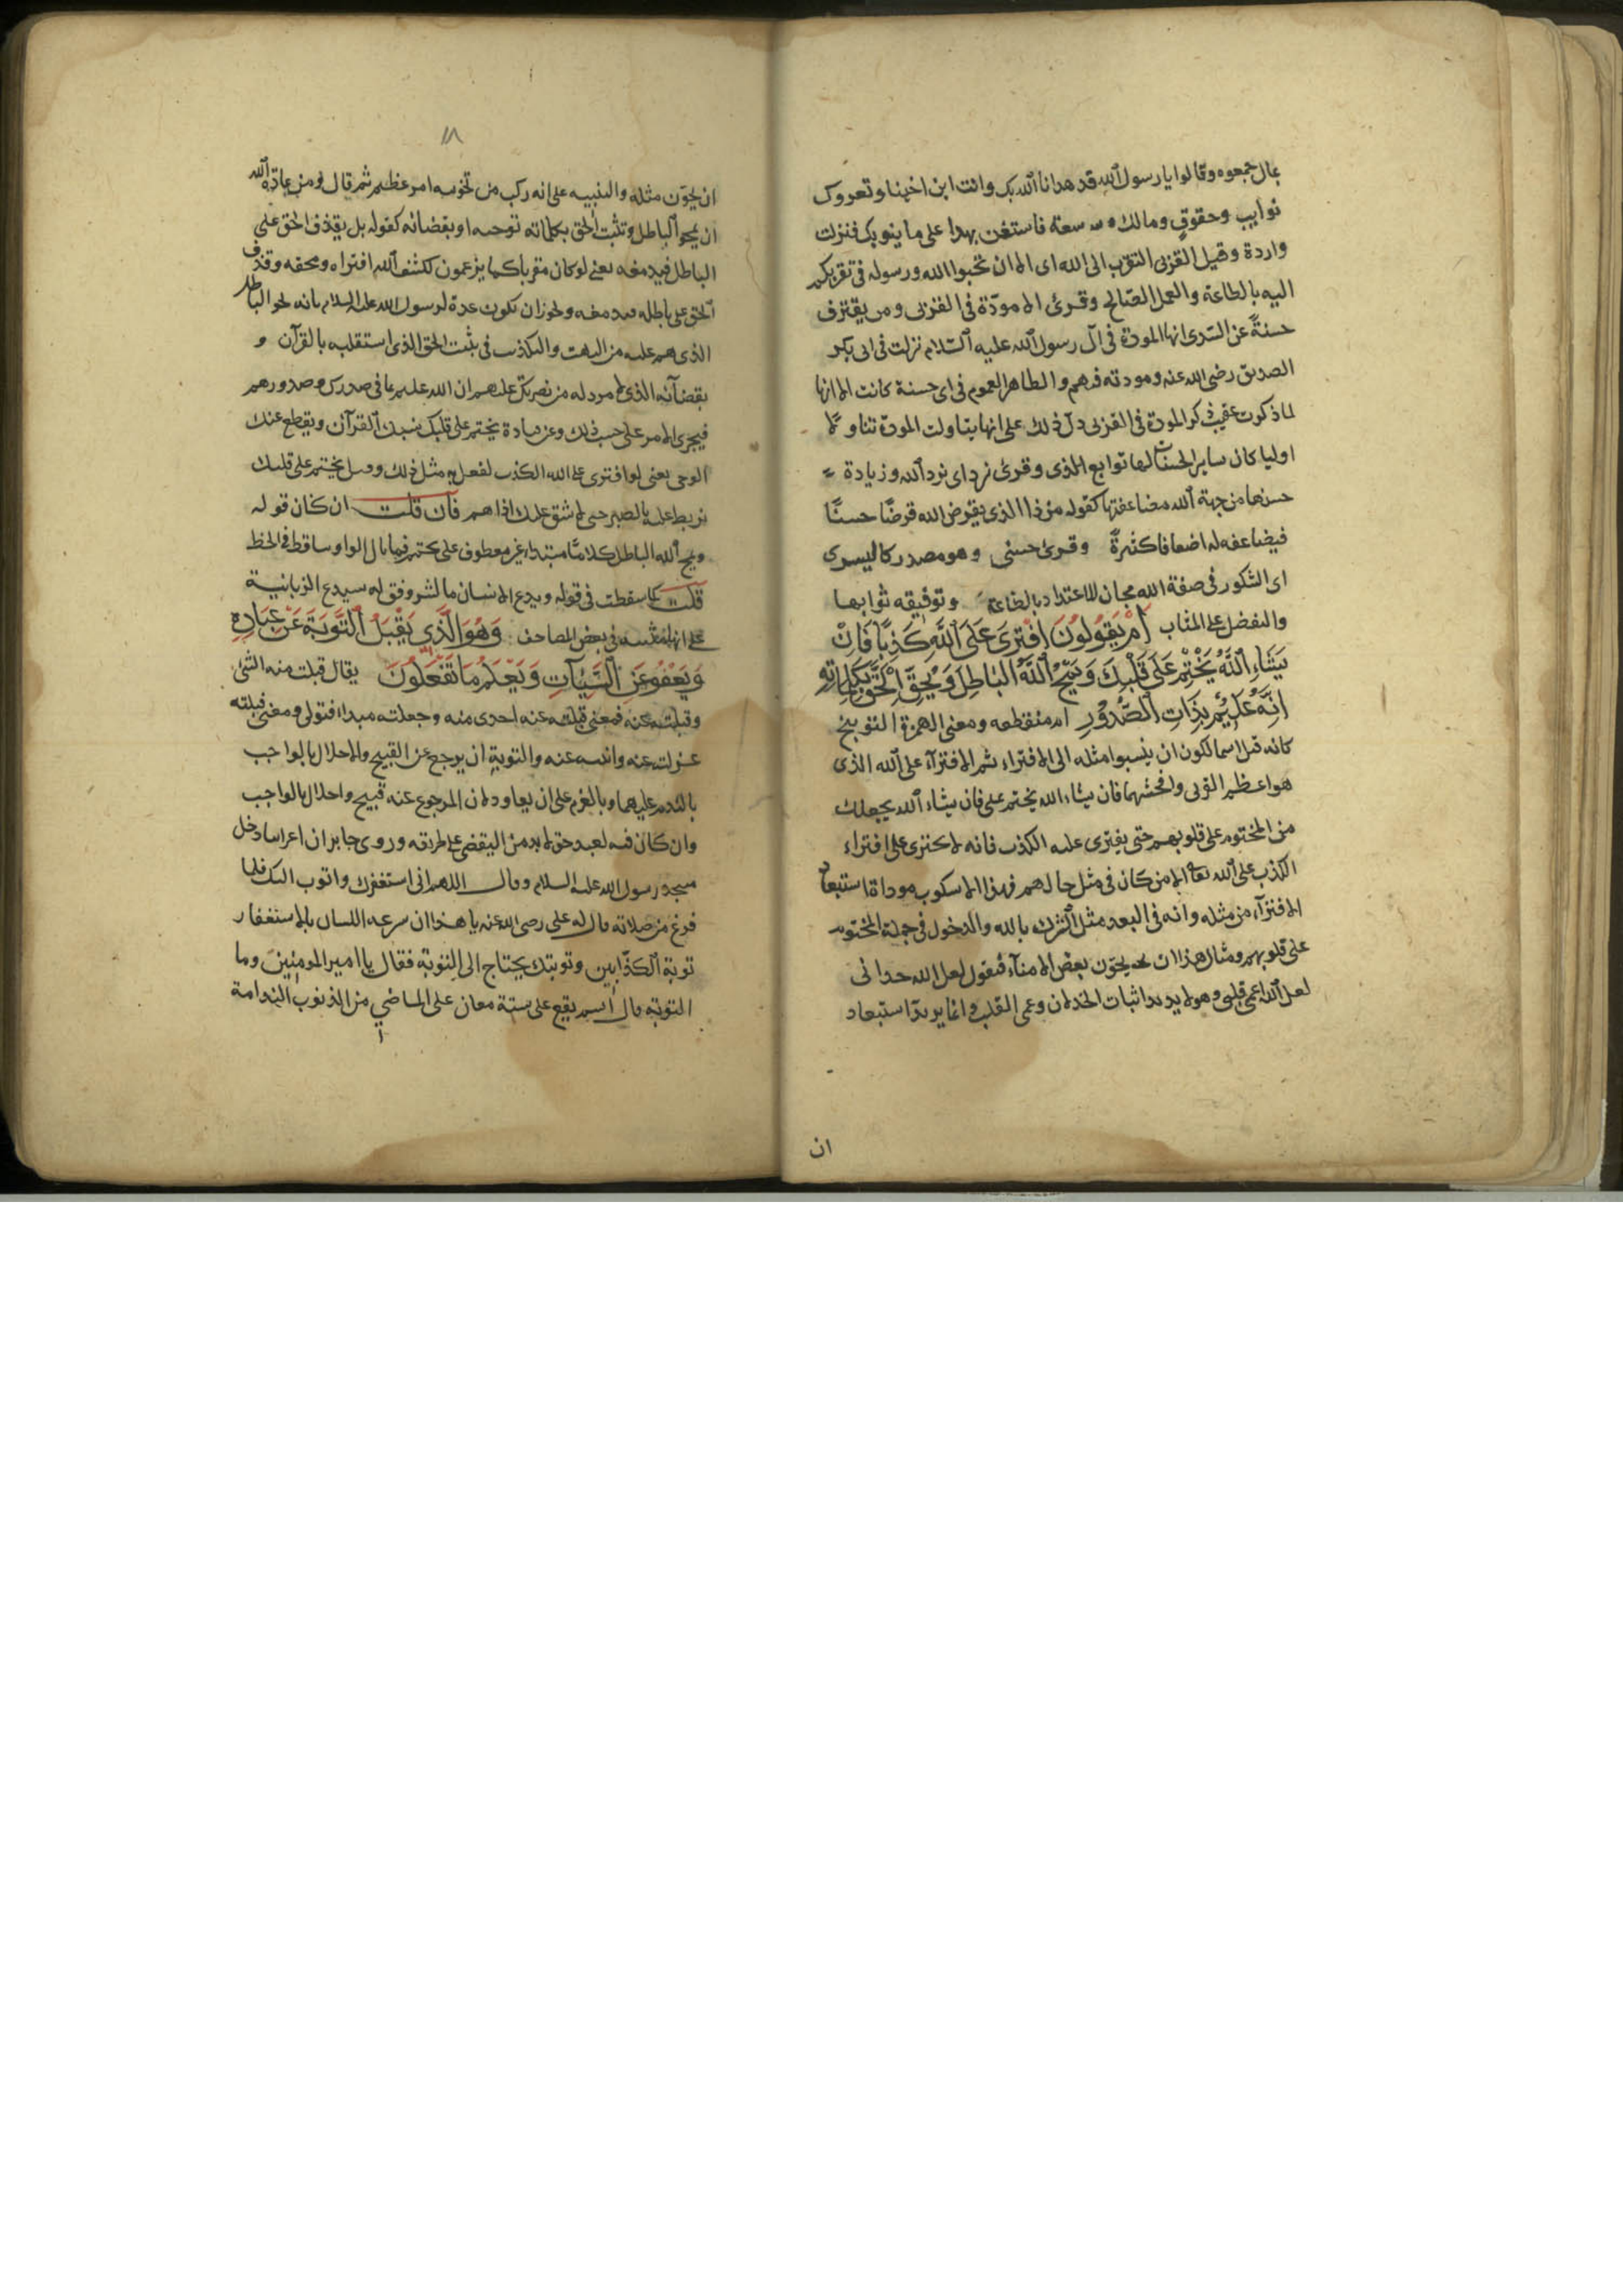 بمال جمعوه وقالوا يا رسول الله قد هدانا الله بك وانت ابن اختنا وتعروك
نوايب وحقوق ومالك سعة فاستعن بهذا على ما ينوبك فنزلت
واردة وقيل القربى التقرب الى الله اى الا ان تحبوا الله ورسوله فى تقربكم
اليه بالطاعة والعمل الصالح وقرئ الا مودة فى القربى ومن يقترف
حسنة عن السدى انها المودة فى آل رسول الله عليه السلام نزلت فى ابى بكر
الصديق رضى الله عنه ومودته فيهم والظاهر العموم فى اى حسنة كانت الا انها
لما ذكرت عقيب ذكر المودة فى القربى دل ذلك على انها تناولت المودة تناولا
اوليا كان ساير الحسنات لها توابع وقرئ يزد اى يزد الله وزيادة
حسنها من جهة الله مضاعفتها كقوله من ذا الذى يقرض الله قرضا حسنا
فيضاعفه له اضعافا كثيرة وقرئ حسنى وهو مصدر كاليسرى
اى الشكور فى صفة الله مجاز للاعتداد بالطاعة وتوفيه ثوابها
والتفضل على المثاب ام يقولون افترى على الله كذبا فان
يشاء الله يختم على قلبك ويمح الله الباطل ويحق الحق بكلماته
انه عليم بذات الصدور ام منقطعه ومعنى الهمزة التوبيخ
كانه قيل ان ينسبوا مثله الى الافتراء ثم الافترآء على الله الذى
هو اعظم الفرى وافحشها فان يشاء الله يختم على فان يشاء الله يجعلك
من المختوم على قلوبهم حتى يفترى عليه الكذب فانه لا يجترى على افتراء
الكذب على الله تعا الا من كان فى مثل حالهم فهذا الاسلوب مؤداه استبعاد
الافترآء من مثله وانه فى البعد مثل الشرك بالله والدخول فى جملة المختوم
على قلوبهم ومثال هذا ان يخون بعض الامنآء فيقول لعل الله خذلنى
لعل الله اعمى قلبى وهو لا يريد اثبات الخذلان وعمى القلب وانما يريد استبعاد
ان
١١٨
ان يخون مثله والتنبيه على انه ركب من تخونه امر عظيم ثم قال ومن عادة الله
ان يمحو الباطل وتثبت الحق بكلماته بوحيه او بقضائه كقوله بل يقذف الحق على
الباطل فيدمغه يعنى لو كان مفتريا كما يزعمون لكشف الله افتراه ومحقه وقذف
الحق على باطله فدمغه ويجوز ان يكون عدة لرسول الله عليه السلام بانه يمحو الباطل
الذى هم عليه من البهت والتكذيب ويثبت الحق الذى بالقرآن و
بقضائه الذى لا مرد له من نصرتك عليهم ان الله عليم بما فى صدرك وصدورهم
فيجرى الامر على حسب ذلك وعن قتادة يختم على قلبك ينسك القرآن ويقطع عنك
الوحى يعنى لو افترى على الله الكذب لفعل به مثل ذلك وقيل يختم على قلبك
يربط عليه بالصبر حتى لا يشق عليك اذاهم فان قلت ان كان قوله
ويمح الله الباطل كلاما مبتداء غير معطوف على يختم فما بال الواو ساقط فى الخط
قلت كما سقطت فى قوله ويدع الانسان بالشر وقوله سيدع الزبانية
على انها مثبتة فى بعض المصاحف وهو الذى يقبل التوبة عن عباده
ويعفو عن السيآت ويعلم ما تفعلون يقال قبلت منه الشئ
وقبلته عنه فمعنى قبلته منه اخذته منه وجعلته مبداء قبولى ومعنى قبلته
عنه عزلته عنه وابنته عنه والتوبة ان يرجع عن القبيح والاخلال بالواجب
بالندم عليهما وبالعزم على ان لا يعاود لان المرجوع عنه قبيح واخلال بالواجب
وان كان فيه لعبد حق لا بد من التفصى على طريقه وروى جابر ان اعرابيا دخل
مسجد رسول الله عليه السلام وقال اللهم انى استغفرك واتوب اليك فلما
فرغ من صلاته قال له على رضى الله عنه يا هذا ان سرعه اللسان بالاستغفار
توبة الكذابين وتوبتك يحتاج الى التوبة فقال يا امير المومنين وما
التوبة قال اسم يقع على ستة معان على الماضى من الذنوب الندامة